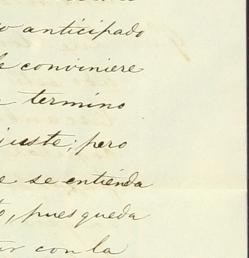 anticipado
conviniere
termino
juste; pero
se entienda
, pues queda
con la